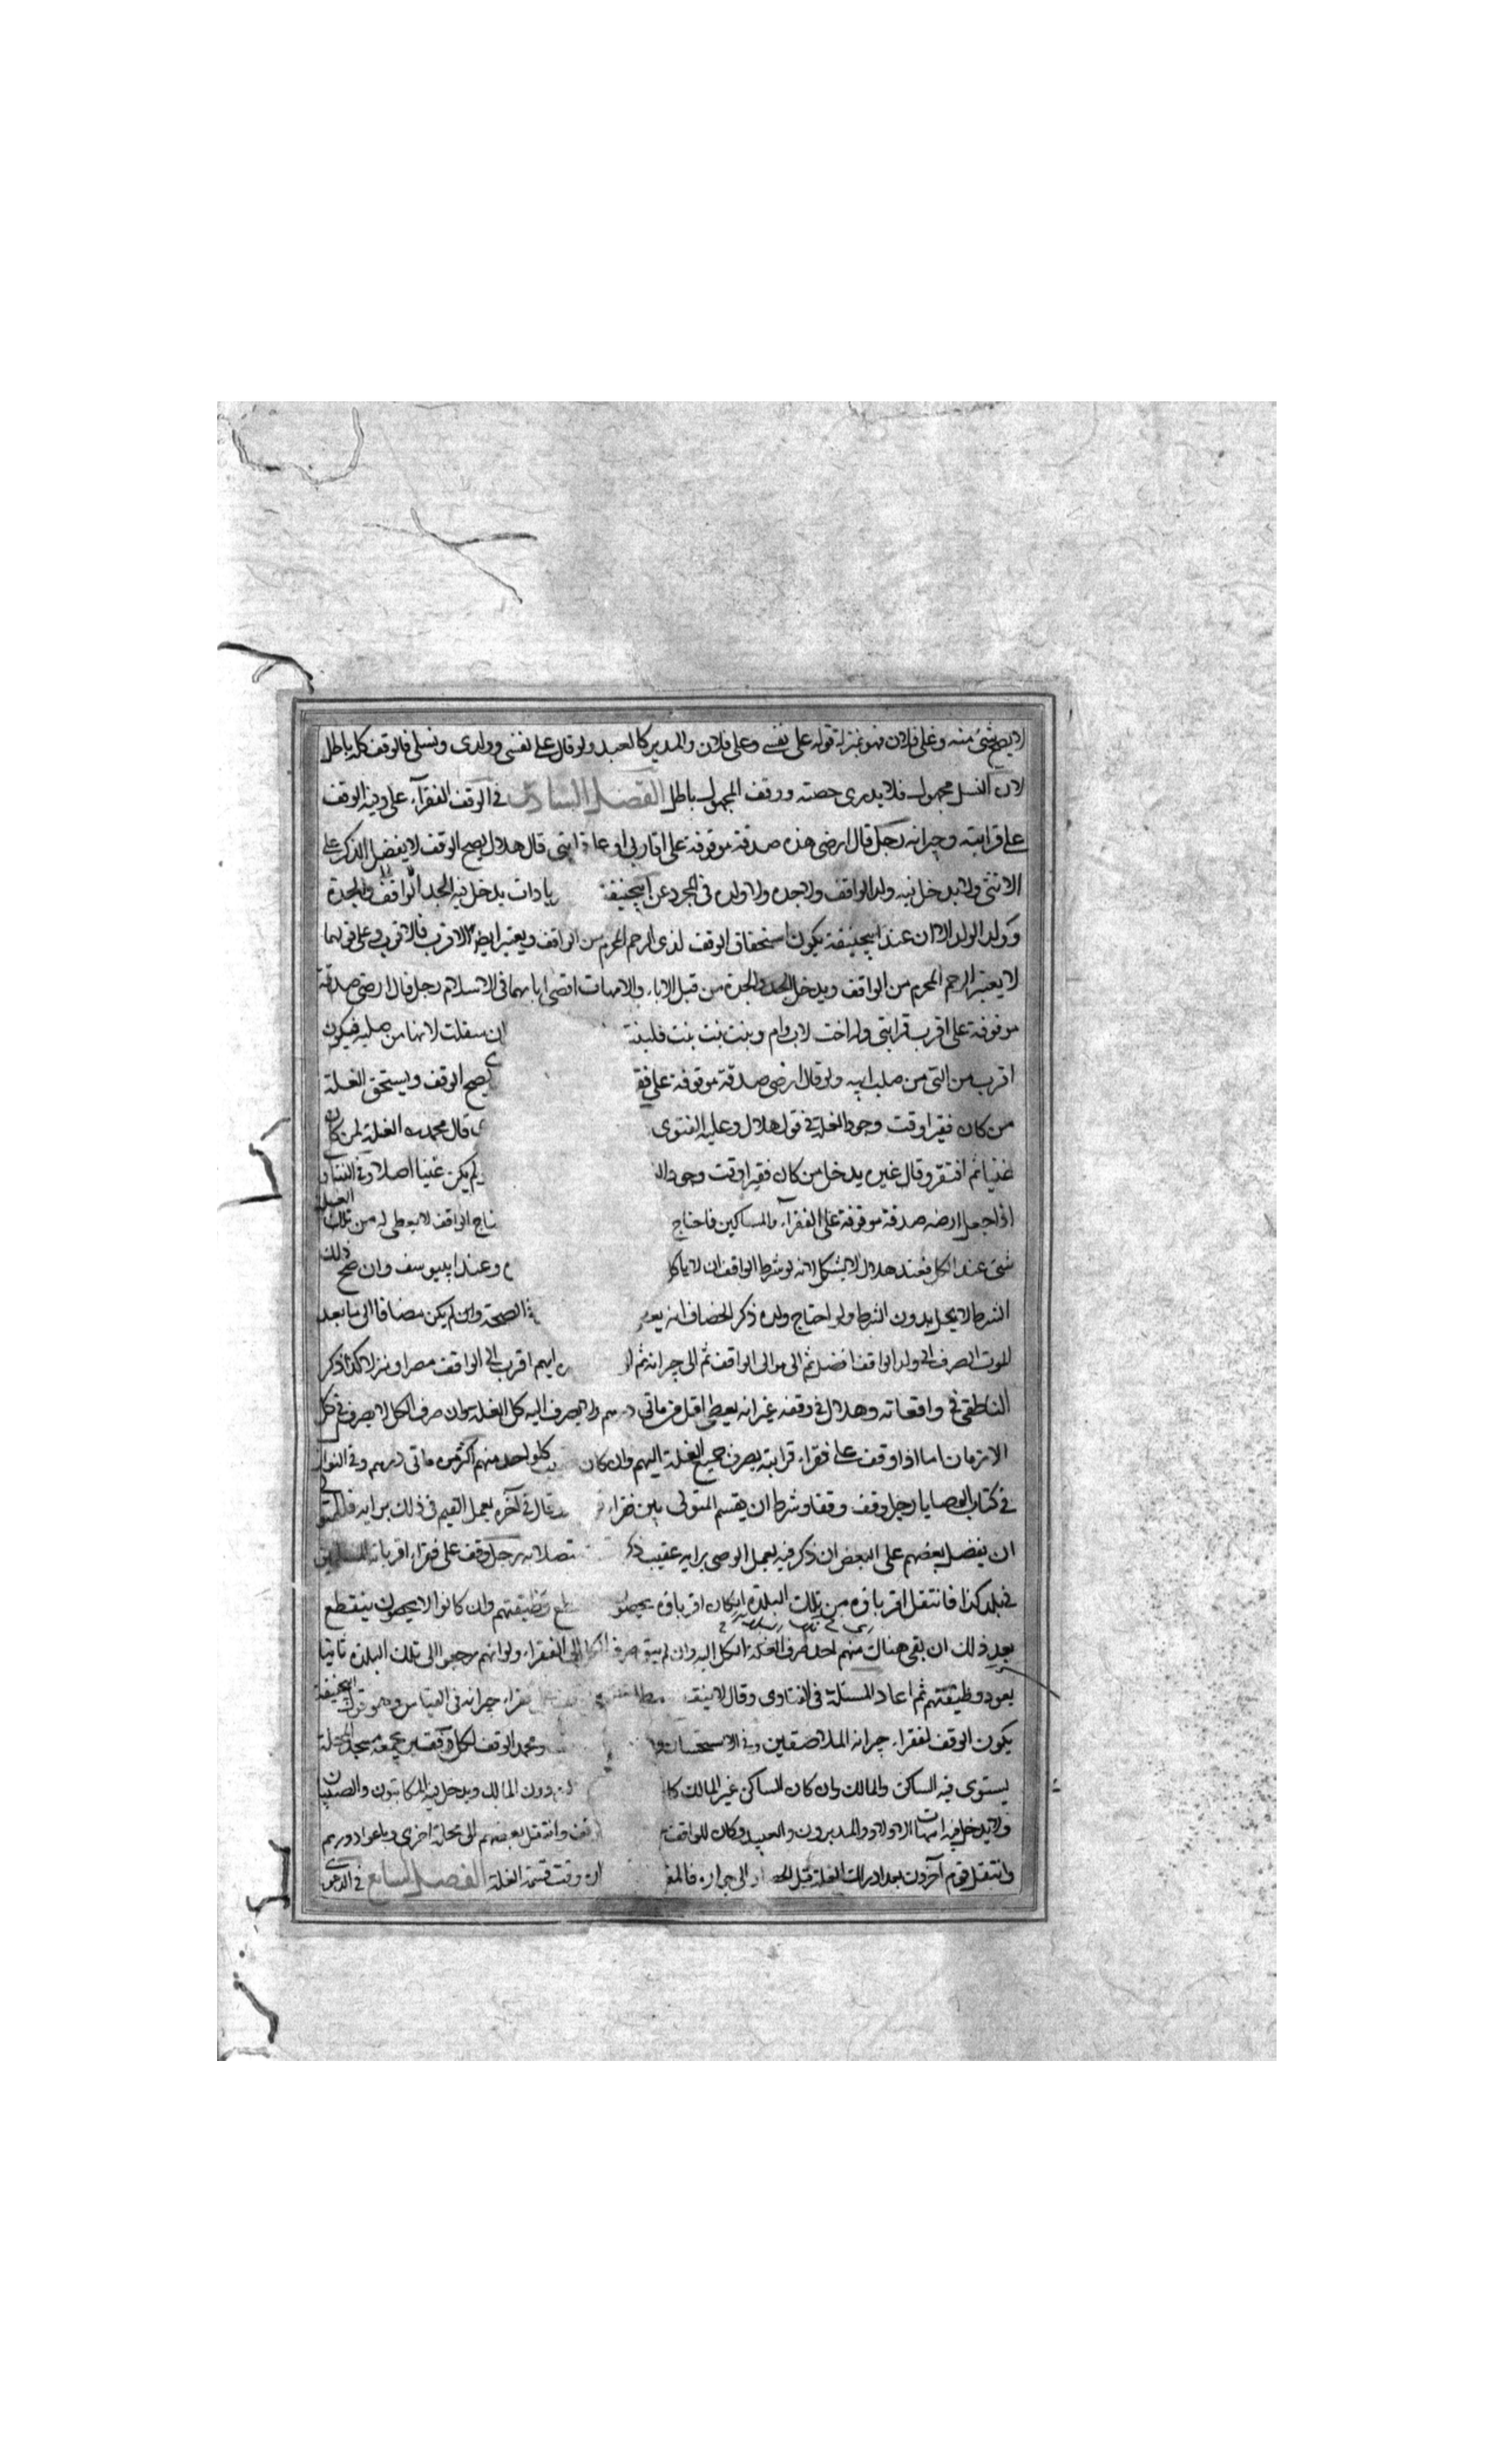 لا يصح شئ منه وعلى فلان فهو بمنزلة قوله على نفسي وعلى فلان والمدبر كالعبد ولو قال على نفسي وولدي ونسلي فالوقف كله باطل
لان النسل مجهول فلا يدرى حصته ووقف المجهول باطل الفصل السادس في الوقف الفقرآء على وجه الوقف
على قرابته وجيرانه رجل قال ارضي هذه صدقة موقوفة على اقاربي او على قرابتي قال هلال يصح الوقف لا يفضل الذكر على
الانثى ولا يدخل فيه ولد الواقف ولا جده ولا ولده في المجرد عن ابيحنيفة يادات يدخل فيه الجد الواقف والجدة
وولد الولد الا ان عند ابيحنيفة يكون استحقاق الوقف لذي الرحم المحرم من الواقف ويعتبر ايضا الاقرب فالاقرب وعلى قولهما
لا يعتبر الرحم المحرم من الواقف ويدخل الجد والجدة من قبل الاباء والامهات اقصى ابا بهما في الاسلام رجل قال ارضي صدقة
موقوفة على اقرب قرابتي وله اخت لاب وام وبنت بنت بنت فلبنته ان سفلت لانها من صلبه فيكون
اقرب من التي من صلب ابيه ولو قال ارضي صدقة موقوفة على فقر يصح الوقف ويستحق الغلة
من كان فقيرا وقت وجود الغلة في قول هلال وعليه الفتوى قال محمد الغلة لمن كان
غنيا ثم افتقر وقال غيره يدخل من كان فقيرا وقت وجود ال ولم يكن غنيا اصلا وفي الفتاوى
اذا جعل ارضه صدقة موقوفة على الفقرآء والمساكين فاحتاج تاج الواقف لا يعطى له من تلك الغلة
شئ عند الكل فعند هلال لا يشكل لانه لو شرط الواقف ان لا ياكل وعند ابييوسف وان صح ذلك
الشرط لا يحل بدون الشرط ولو احتاج ولده ذكر الخصاف انه يع الصحة وان لم يكن مضافا الى ما بعد
الموت الصرف الى ولد الواقف افضل ثم الى موالى الواقف ثم الى جيرانه ثم ايهم اقرب الى الواقف مصرا ومنزلا كذا ذكر
الناطفي في واقعاته وهلال في وقفه غير انه يعطى اقل من مأتي درهم ولا يصرف اليه كل الغلة وان صرف الكل لا يصرف في كل
الازمان اما اذا وقف على فقراء قرابته يصرف جميع الغلة اليهم وان كان كل واحد منهم اكثر من مأتي درهم وفي النوازل
في كتاب الوصايا رجل وقف وقفا وشرط ان يقسم المتولي بين فقراء قال في آخره يعمل القيم في ذلك برايه فللمتولي
ان يفضل بعضهم على البعض ان ذكر فيه يعمل الوصي برايه عقيب ذكر متصلا به رجل وقف على فقراء اقربائه
في بلد كذا فانتقل اقرباؤه من تلك البلدة ان كان اقرباؤه يحصون وظيفتهم وان كانوا لا يحصون ينقطع
بعد ذلك ان بقي هناك منهم احد صرف الغلة الكل اليه وان لم يبق صرف الكل الى الفقراء ولو انهم رجعوا الى تلك البلدة ثانيا
يعود وظيفتهم ثم اعاد المسئلة في الفتاوى وقال لا ينق فقراء جيرانه في القياس وهو قول ابيحنيفة
يكون الوقف لفقراء جيرانه الملاصقين وفي الاستحسان و ومحمد الوقف لكل فقير يجمعه مسجد المحلة
يستوى فيه الساكن والمالك وان كان الساكن غير المالك كا دون المالك ويدخل فيه المكاتبون والصبيان
ولا يدخل فيه امهات الاولاد والمدبرون والعبيد وكان للواقف وانتقل بعضهم الى محلة اخرى وباعوا دورهم
وانتقل قوم آخرون بعد ادراك الغلة قبل الحصاد الى جواره فالمعتبر وقت قسمة الغلة الفصل السابع في الدعوى